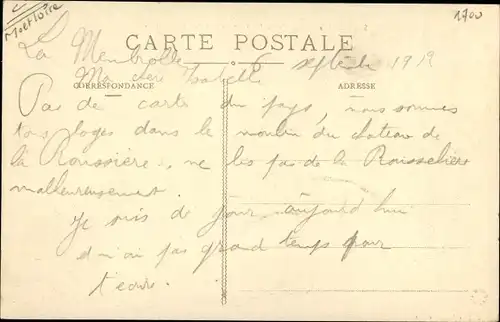 M et Loire
1700
CARTE POSTALE
La Membrolle 6 septembre 1912
CORRESPONDANCE
ADRESSE
Ma chère Isabelle
Pas de carte du pays, nous sommes
tous logés dans le moulin du chateau de
la Roussière, ne les pas de la Rousselière
malheureusement.
Je suis de jour aujourd'hui
et n'ai pas grand temps pour
t'ecrire.